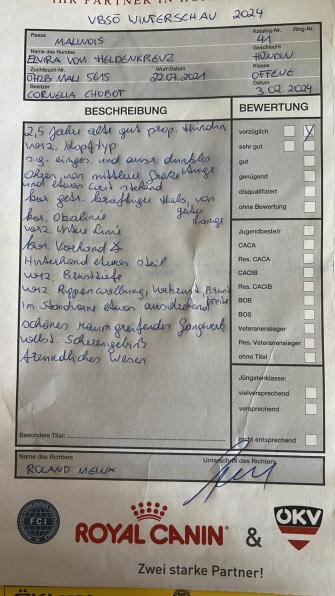 IHR PARTNER IN H
VBSÖ WINTERSCHAU 2024
Rasse Katalog-Nr. Ring-Nr.
MALINOIS 41
Name des Hundes Geschlecht
ELVIRA VOM HELDENKREUZ HÜNDIN
Zuchtbuch-Nr. Wurf-Datum Klasse
ÖHZB MALI 5615 22.07.2021 OFFENE
Besitzer Datum
CORNELIA CHOBOT 3.02.2024
BESCHREIBUNG
2,5 Jahre alte gut prop. Hündin
vorz. Kopftyp
s.g. einges. und ausr. dunkles
Augen, von mittlerer Größe
und etwas weit stehend
kor. getr. kräftiger Hals, von guter Länge
kor. Oberlinie
vorz. Unterlinie
kor. Vorhand
Hinterhand etwas steil
vorz. Brusttiefe
vorz. Rippenwölbung, Vorbrust, Brustbreite
im Stand vorne etwas ausdrehend
schönes raumgreifendes Gangwerk
vollst. Scherengebiß
freundliches Wesen
Besondere Titel:
BEWERTUNG
vorzüglich X
sehr gut
gut
genügend
disqualifiziert
ohne Bewertung
Jugendbeste/r
CACA
Res. CACA
CACIB
Res. CACIB
BOB
BOS
Veteranensieger
Res. Veteranensieger
ohne Titel
Jüngstenklasse:
vielversprechend
versprechend
nicht entsprechend
Name des Richters Unterschrift des Richters
ROLAND MEINX
FCI
ROYAL CANIN & ÖKV
Zwei starke Partner!